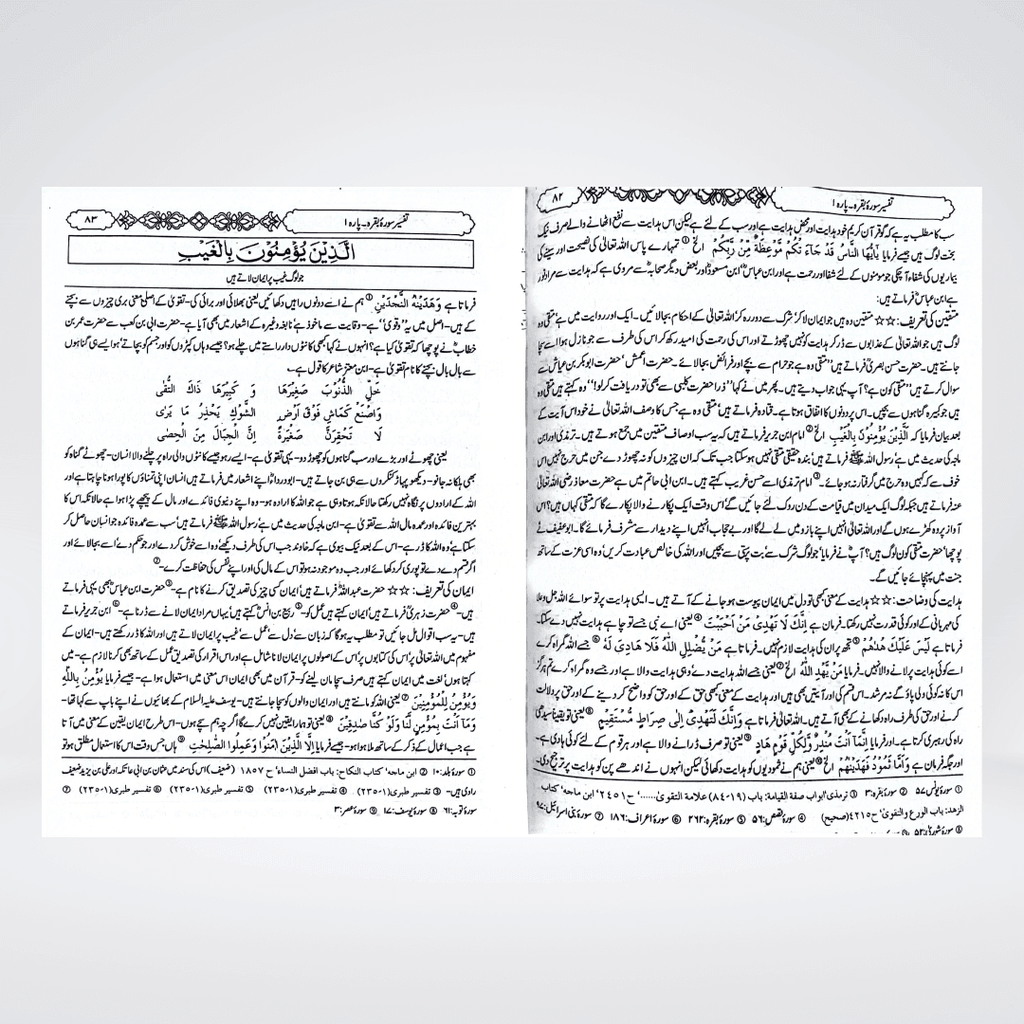 تفسیر سورۂ بقرہ۔ پارہ ۱
۸۲
سب کا مطلب یہ ہے کہ گو قرآن کریم خود ہدایت اور محض ہدایت ہے اور سب کے لئے ہے لیکن اس ہدایت سے نفع اٹھانے والے صرف نیک
بخت لوگ ہیں جیسے فرمایا يٰٓاَيُّهَا النَّاسُ قَدْ جَآءَتْكُمْ مَّوْعِظَةٌ مِّنْ رَّبِّكُمْ الخ ① تمہارے پاس اللہ تعالیٰ کی نصیحت اور سینے کی
بیماریوں کی شفاء آ چکی جو مومنوں کے لئے شفا اور رحمت ہے اور ابن عباسؓ ابن مسعودؓ اور بعض دیگر صحابہؓ سے مروی ہے کہ ہدایت سے مراد نور
ہے ابن عباسؓ فرماتے ہیں:
متقین کی تعریف: ☆☆ متقین وہ ہیں جو ایمان لا کر شرک سے دور رہ کر اللہ تعالیٰ کے احکام بجا لائیں۔ ایک اور روایت میں ہے متقی وہ
لوگ ہیں جو اللہ تعالیٰ کے عذابوں سے ڈر کر ہدایت کو نہیں چھوڑتے اور اس کی رحمت کی امید رکھ کر اس کی طرف سے جو نازل ہوا اسے سچا
جانتے ہیں۔ حضرت حسن بصریؒ فرماتے ہیں ''متقی وہ ہے جو حرام سے بچے اور فرائض بجا لائے۔ حضرت اعمشؒ حضرت ابوبکر بن عیاشؒ سے
سوال کرتے ہیں ''متقی کون ہے؟ آپ یہی جواب دیتے ہیں۔ پھر میں نے کہا ''ذرا حضرت کلبیؒ سے بھی تو دریافت کر لو!'' وہ کہتے ہیں متقی وہ
ہیں جو کبیرہ گناہوں سے بچیں۔ اس پر دونوں کا اتفاق ہوتا ہے۔ قتادہؒ فرماتے ہیں متقی وہ ہے جس کا وصف اللہ تعالیٰ نے خود اس آیت کے
بعد بیان فرمایا کہ الَّذِيْنَ يُؤْمِنُوْنَ بِالْغَيْبِ الخ ② امام ابن جریرؒ فرماتے ہیں کہ یہ سب اوصاف متقین میں جمع ہوتے ہیں۔ ترمذی اور ابن
ماجہ کی حدیث میں ہے رسول اللہ ﷺ فرماتے ہیں: بندہ حقیقی متقی نہیں ہو سکتا جب تک کہ ان چیزوں کو نہ چھوڑ دے جن میں حرج نہیں اس
خوف سے کہ کہیں وہ حرج میں گرفتار نہ ہو جائے۔ ③ امام ترمذی اسے حسن غریب کہتے ہیں۔ ابن ابی حاتم میں ہے حضرت معاذ رضی اللہ تعالیٰ
عنہ فرماتے ہیں جبکہ لوگ ایک میدان میں قیامت کے دن روک لئے جائیں گے اس وقت ایک پکارنے والا پکارے گا کہ متقی کہاں ہیں؟ اس
آواز پر وہ کھڑے ہوں گے اور اللہ تعالیٰ انہیں اپنے بازو میں لے لے گا اور بے حجاب انہیں اپنے دیدار سے مشرف فرمائے گا۔ ابو عفیف نے
پوچھا حضرت متقی کون لوگ ہیں؟ آپؓ نے فرمایا جو لوگ شرک سے بت پرستی سے بچیں اور اللہ کی خالص عبادت کریں وہ اسی عزت کے ساتھ
جنت میں پہنچائے جائیں گے۔
ہدایت کی وضاحت: ☆☆ ہدایت کے معنی کبھی تو دل میں ایمان پیوست ہو جانے کے آتے ہیں۔ ایسی ہدایت پر تو سوائے اللہ جل و علا
کی مہربانی کے اور کوئی قدرت نہیں رکھتا۔ فرمان ہے اِنَّكَ لَا تَهْدِيْ مَنْ اَحْبَبْتَ ④ یعنی اے نبی جسے تو چاہے ہدایت نہیں دے سکتا۔
فرماتا ہے لَيْسَ عَلَيْكَ هُدٰهُمْ ⑤ تجھ پر ان کی ہدایت لازم نہیں۔ فرماتا ہے مَنْ يُّضْلِلِ اللّٰهُ فَلَا هَادِيَ لَهٗ ⑥ جسے اللہ گمراہ کرے
اسے کوئی ہدایت پر لانے والا نہیں۔ فرمایا مَنْ يَّهْدِ اللّٰهُ الخ ⑦ یعنی جسے اللہ ہدایت دے وہی ہدایت والا ہے اور جسے وہ گمراہ کرے تم ہرگز
اس کا نہ کوئی ولی پاؤ گے نہ مرشد۔ اس قسم کی اور آیتیں بھی ہیں اور ہدایت کے معنی کبھی حق کے اور حق کو واضح کر دینے کے اور حق پر دلالت
کرنے اور حق کی طرف راہ دکھانے کے بھی آتے ہیں۔ اللہ تعالیٰ فرماتا ہے وَاِنَّكَ لَتَهْدِيْٓ اِلٰى صِرَاطٍ مُّسْتَقِيْمٍ ⑧ یعنی تو یقیناً سیدھی
راہ کی رہبری کرتا ہے۔ اور فرمایا اِنَّمَآ اَنْتَ مُنْذِرٌ وَّلِكُلِّ قَوْمٍ هَادٍ یعنی تو صرف ڈرانے والا ہے اور ہر قوم کے لئے کوئی ہادی ہے۔
اور جگہ فرمان ہے وَاَمَّا ثَمُوْدُ فَهَدَيْنٰهُمْ الخ یعنی ہم نے ثمودیوں کو ہدایت دکھائی لیکن انہوں نے اندھے پن کو ہدایت پر ترجیح دی۔
① سورۂ یونس: ۵۷ ② سورۂ بقرہ: ۳ ③ ترمذی، ابواب صفة القيامة: باب (۱۹-۸۴) علامة التقوىٰ......' ح ۲۴۵۱' ابن ماجه' كتاب
الزهد: باب الورع والتقوىٰ' ح ۴۲۱۵ (صحیح) ④ سورۂ قصص: ۵۶ ⑤ سورۂ بقرہ: ۲۷۲ ⑥ سورۂ اعراف: ۱۸۶ ⑦ سورۂ بنی اسرائیل: ۹۷
⑧ سورۂ شوریٰ: ۵۲
تفسیر سورۂ بقرہ۔ پارہ ۱
۸۳
الَّذِيْنَ يُؤْمِنُوْنَ بِالْغَيْبِ
جو لوگ غیب پر ایمان لاتے ہیں
فرماتا ہے وَهَدَيْنٰهُ النَّجْدَيْنِ ① ہم نے اسے دونوں راہیں دکھائیں یعنی بھلائی اور برائی کی۔ تقویٰ کے اصلی معنی بری چیزوں سے بچنے
کے ہیں۔ اصل میں یہ ''وقوی'' ہے۔ وقایت سے ماخوذ ہے نابغہ وغیرہ کے اشعار میں بھی آیا ہے۔ حضرت ابی بن کعبؓ سے حضرت عمر بن
خطابؓ نے پوچھا کہ تقویٰ کیا ہے؟ انہوں نے کہا کبھی کانٹوں دار راستے میں چلے ہو؟ جیسے وہاں کپڑوں کو اور جسم کو بچاتے ہو ایسے ہی گناہوں
سے بال بال بچنے کا نام تقویٰ ہے۔ ابن معتز شاعر کا قول ہے
خَلِّ الذُّنُوْبَ صَغِيْرَهَا وَ كَبِيْرَهَا ذَاكَ التُّقٰى
وَاصْنَعْ كَمَاشٍ فَوْقَ اَرْضِ الشَّوْكِ يَحْذَرُ مَا يَرٰى
لَا تَحْقِرَنَّ صَغِيْرَةً اِنَّ الْجِبَالَ مِنَ الْحِصٰى
یعنی چھوٹے اور بڑے اور سب گناہوں کو چھوڑ دو۔ یہی تقویٰ ہے۔ ایسے رہو جیسے کانٹوں والی راہ پر چلنے والا انسان۔ چھوٹے گناہ کو
بھی ہلکا نہ جانو۔ دیکھو پہاڑ کنکروں سے ہی بن جاتے ہیں۔ ابو درداءؓ اپنے اشعار میں فرماتے ہیں انسان اپنی تمناؤں کا پورا ہونا چاہتا ہے اور
اللہ کے ارادوں پر نگاہ نہیں رکھتا حالانکہ ہوتا وہی ہے جو اللہ کا ارادہ ہو۔ وہ اپنے دنیوی فائدے اور مال کے پیچھے پڑا ہوا ہے حالانکہ اس کا
بہترین فائدہ اور عمدہ مال اللہ سے تقویٰ ہے۔ ابن ماجہ کی حدیث میں ہے رسول اللہ ﷺ فرماتے ہیں سب سے عمدہ فائدہ جو انسان حاصل کر
سکتا ہے وہ اللہ کا ڈر ہے۔ اس کے بعد نیک بیوی ہے کہ خاوند جب اس کی طرف دیکھے وہ اسے خوش کر دے اور جو حکم دے اسے بجا لائے اور
اگر قسم دے دے تو پوری کر دکھائے اور جب وہ موجود نہ ہو تو اس کے مال کی اور اپنے نفس کی حفاظت کرے۔ ②
ایمان کی تعریف: ☆☆ حضرت عبداللہؓ فرماتے ہیں ایمان کسی چیز کی تصدیق کرنے کا نام ہے۔ ③ حضرت ابن عباسؓ بھی یہی فرماتے
ہیں۔ ④ حضرت زہریؒ فرماتے ہیں ایمان کہتے ہیں عمل کو۔ ⑤ ربیع بن انسؒ کہتے ہیں یہاں مراد ایمان لانے سے ڈرنا ہے۔ ⑥ ابن جریر فرماتے
ہیں۔ یہ سب اقوال مل جائیں تو مطلب یہ ہو گا کہ زبان سے دل سے عمل سے غیب پر ایمان لاتے ہیں اور اللہ کا ڈر رکھتے ہیں۔ ایمان کے
مفہوم میں اللہ تعالیٰ پر اس کی کتابوں پر اس کے اصولوں پر ایمان لانا شامل ہے اور اس اقرار کی تصدیق عمل کے ساتھ بھی کرنا لازم ہے۔ میں
کہتا ہوں لغت میں ایمان کہتے ہیں صرف سچا مان لینے کو۔ قرآن میں بھی ایمان اس معنی میں استعمال ہوا ہے۔ جیسے فرمایا يُؤْمِنُ بِاللّٰهِ
وَيُؤْمِنُ لِلْمُؤْمِنِيْنَ ⑦ یعنی اللہ کو مانتے ہیں اور ایمان والوں کو سچا جانتے ہیں۔ یوسف علیہ السلام کے بھائیوں نے اپنے باپ سے کہا تھا۔
وَمَآ اَنْتَ بِمُؤْمِنٍ لَّنَا وَلَوْ كُنَّا صٰدِقِيْنَ ⑧ یعنی تو ہمارا یقین نہیں کرے گا اگرچہ ہم سچے ہوں۔ اس طرح ایمان یقین کے معنی میں آتا
ہے جب اعمال کے ذکر کے ساتھ ملا ہوا ہو۔ جیسے فرمایا اِلَّا الَّذِيْنَ اٰمَنُوْا وَعَمِلُوا الصّٰلِحٰتِ ⑨ ہاں جس وقت اس کا استعمال مطلق ہو تو
① سورۂ بلد: ۱۰ ② ابن ماجه' كتاب النكاح: باب افضل النساء' ح ۱۸۵۷ (ضعیف) اس کی سند میں عثمان بن ابی عاتکہ اور علی بن یزید ضعیف
راوی ہیں۔ ③ تفسیر طبری (۱/۲۳۵) ④ تفسیر طبری (۱/۲۳۵) ⑤ تفسیر طبری (۱/۲۳۵) ⑥ تفسیر طبری (۱/۲۳۵) ⑦
سورۂ توبہ: ۶۱ ⑧ سورۂ یوسف: ۱۷ ⑨ سورۂ عصر: ۳